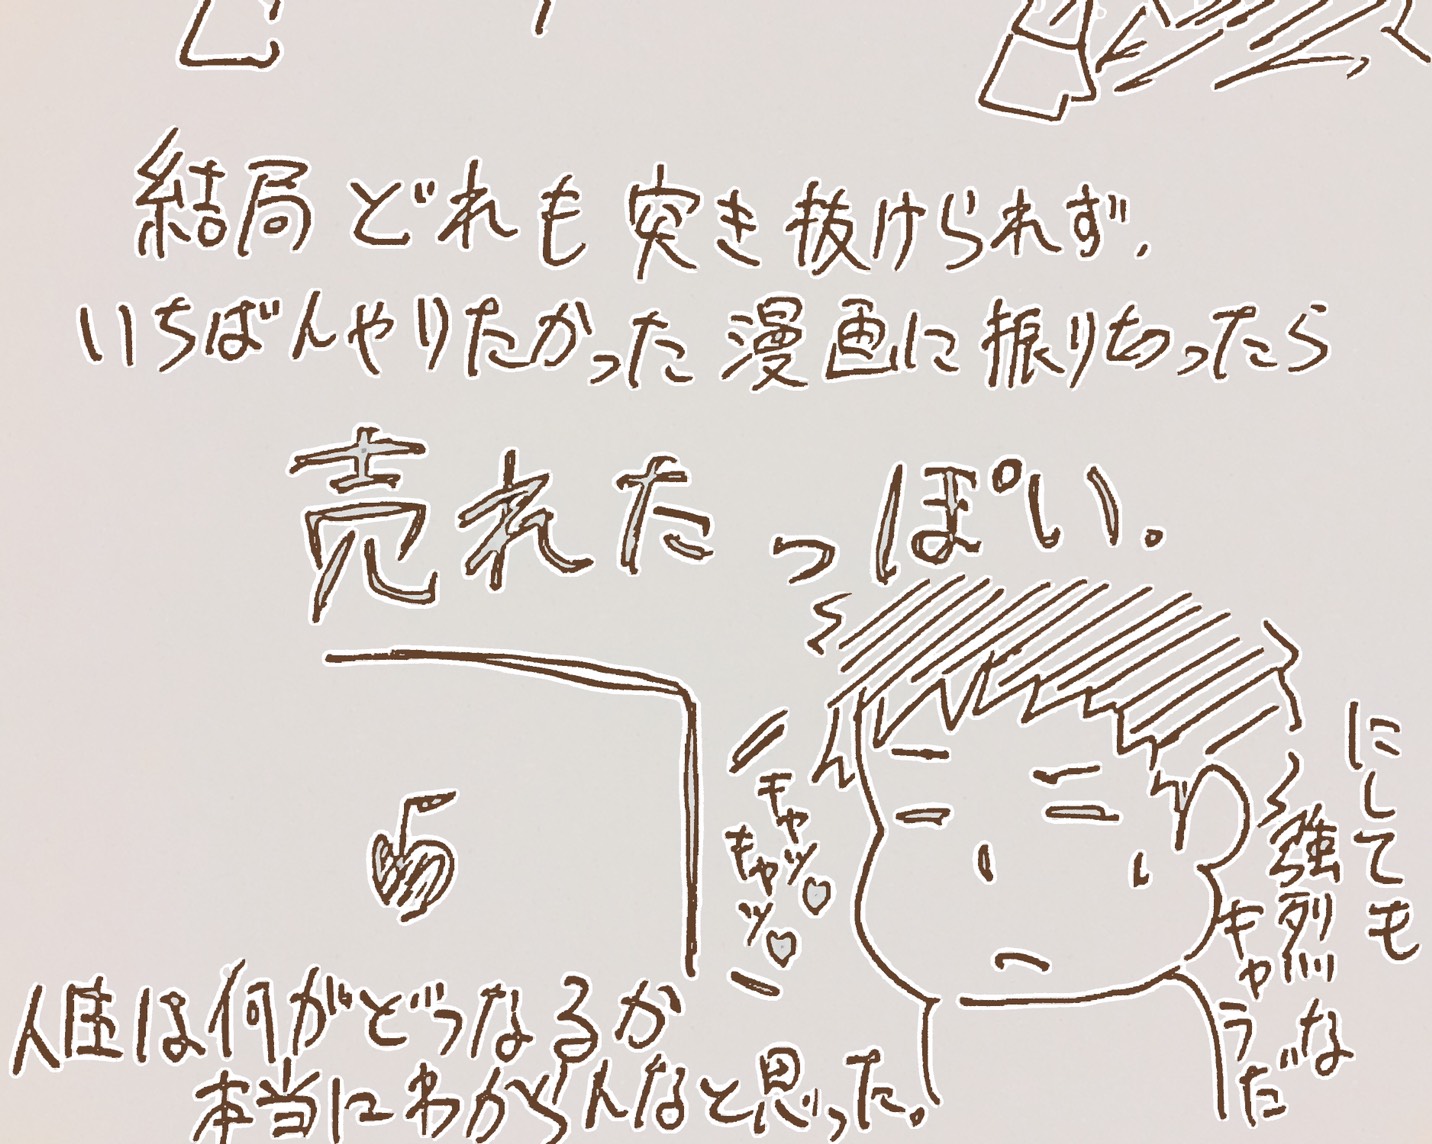 結局どれも突き抜けられず、
いちばんやりたかった漫画に振りきったら
売れたっぽい。
キャッ
キャッ
にしても
強烈な
キャラだ
人生は何がどうなるか
本当にわからんなと思った。